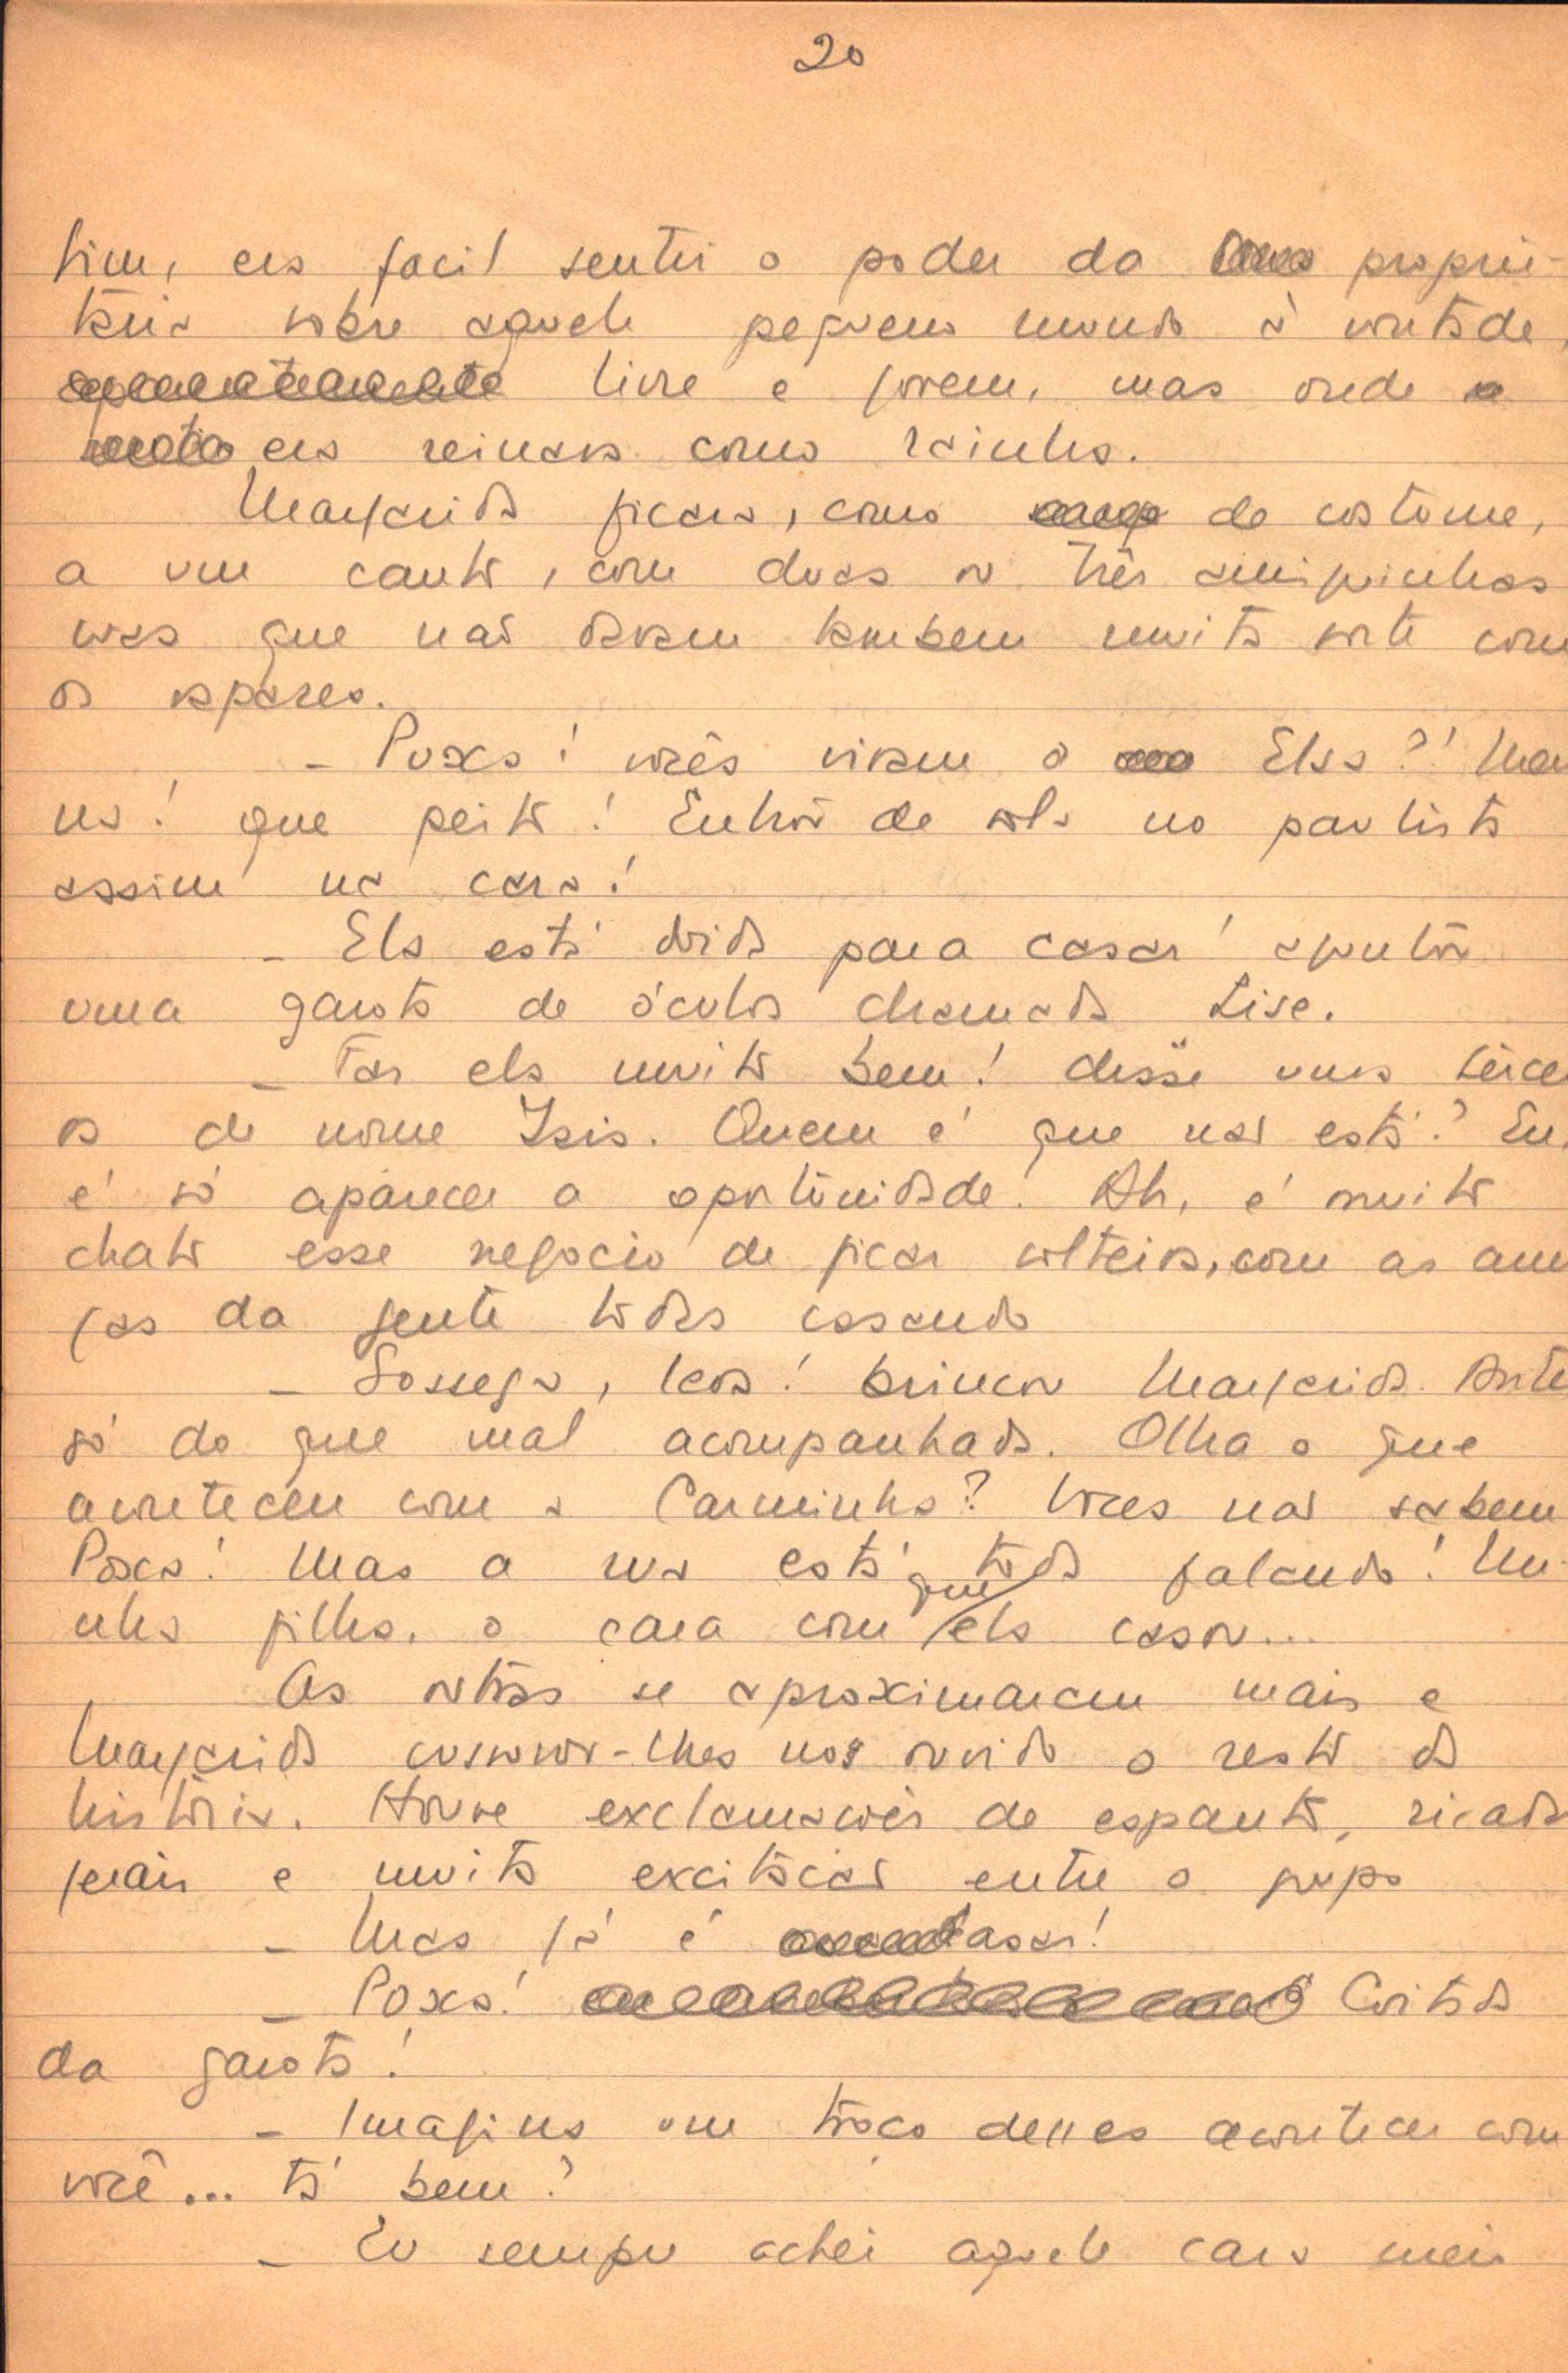 20
sim, era facil sentir o poder da proprie-
tária sobre aquele pequeno mundo à vontade,
livre e jovem, mas onde
ela reinava como rainha.
Margarida ficara, como de costume,
a um canto, com duas ou três amiguinhas
que não davam tambem muita sorte com
os rapazes.
- Puxa! vocês viram a Elsa?! Mar
na! que peito! Entrou de sola no paulista
assim na cara!
- Ela está doida para casar! ajuntou
uma garota de óculos chamada Lise.
- Faz ela muito bem! disse uma tercei
ra de nome Isis. Quem é que não está? Eu,
é só aparecer a oportunidade! Ah, é muito
chato esse negocio de ficar solteira, com as ami
gas da gente todas casando
- Sossega, leoa! brincou Margarida. Antes
só do que mal acompanhada. Olha o que
aconteceu com a Carminha? Voces não sabem
Poxa! Mas a rua está toda falando! Mi
nha filha, o cara com que ela casou...
As outras se aproximaram mais e
Margarida cusurrou-lhes nos ouvido o resto da
história. Houve exclamações de espanto, risada
gerais e muita excitação entre o grupo
- Mas já é asar!
- Poxa! Coitada
da garota!
- Imagina um troço desses acontecer com
você... tá bem?
- Eu sempre achei aquele cara meio